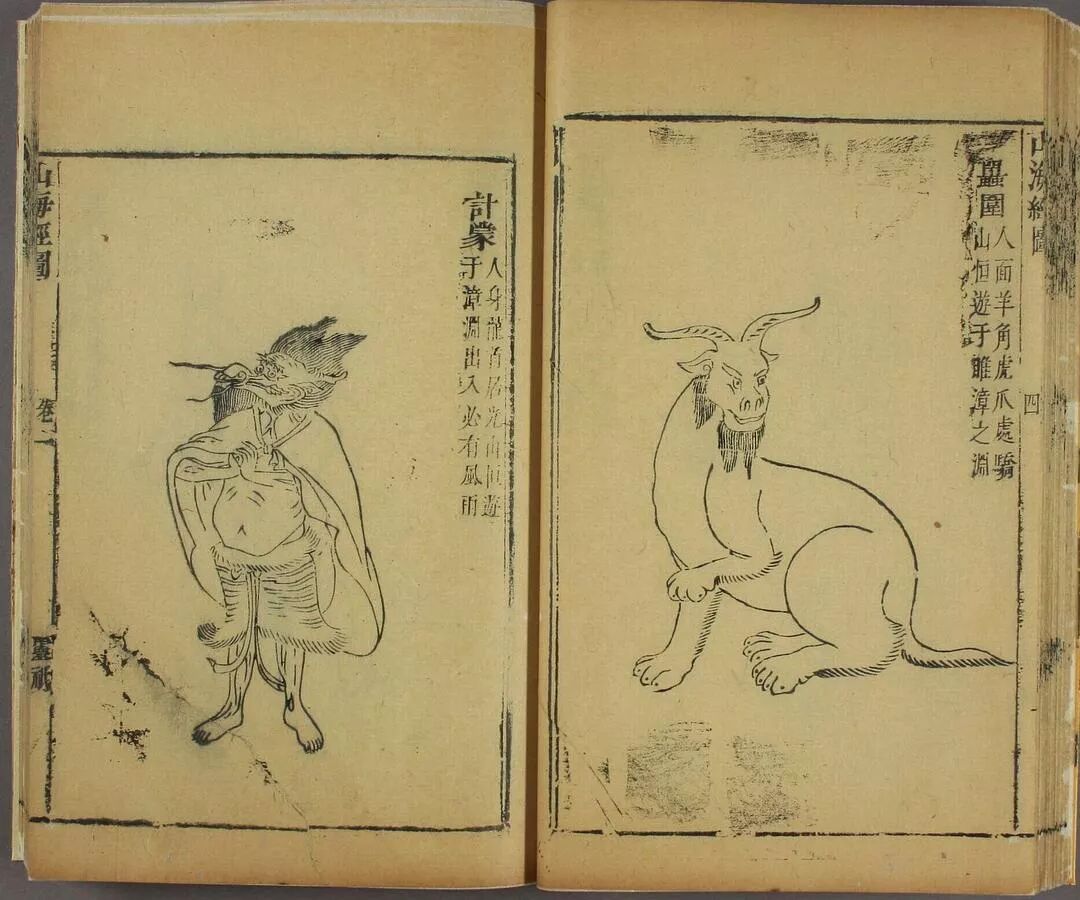 山海經圖
四
圍
人面羊角虎爪處驕
山恒遊于雎漳之淵
計蒙
人身龍首居光山恒遊
于漳淵出入必有風雨
山海經圖
卷二
靈祇